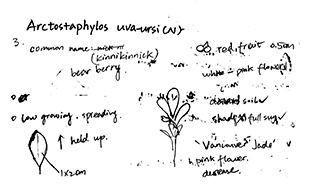 Arctostaphylos uva-ursi (N)
3.
common name:
(kinnikinnick)
bear berry
low growing. spreading.
↑ held up.
1x2cm
red. fruit 0.5cm
white - pink flowers
soil
shade full sun
'Vancouver Jade'
pink flower.